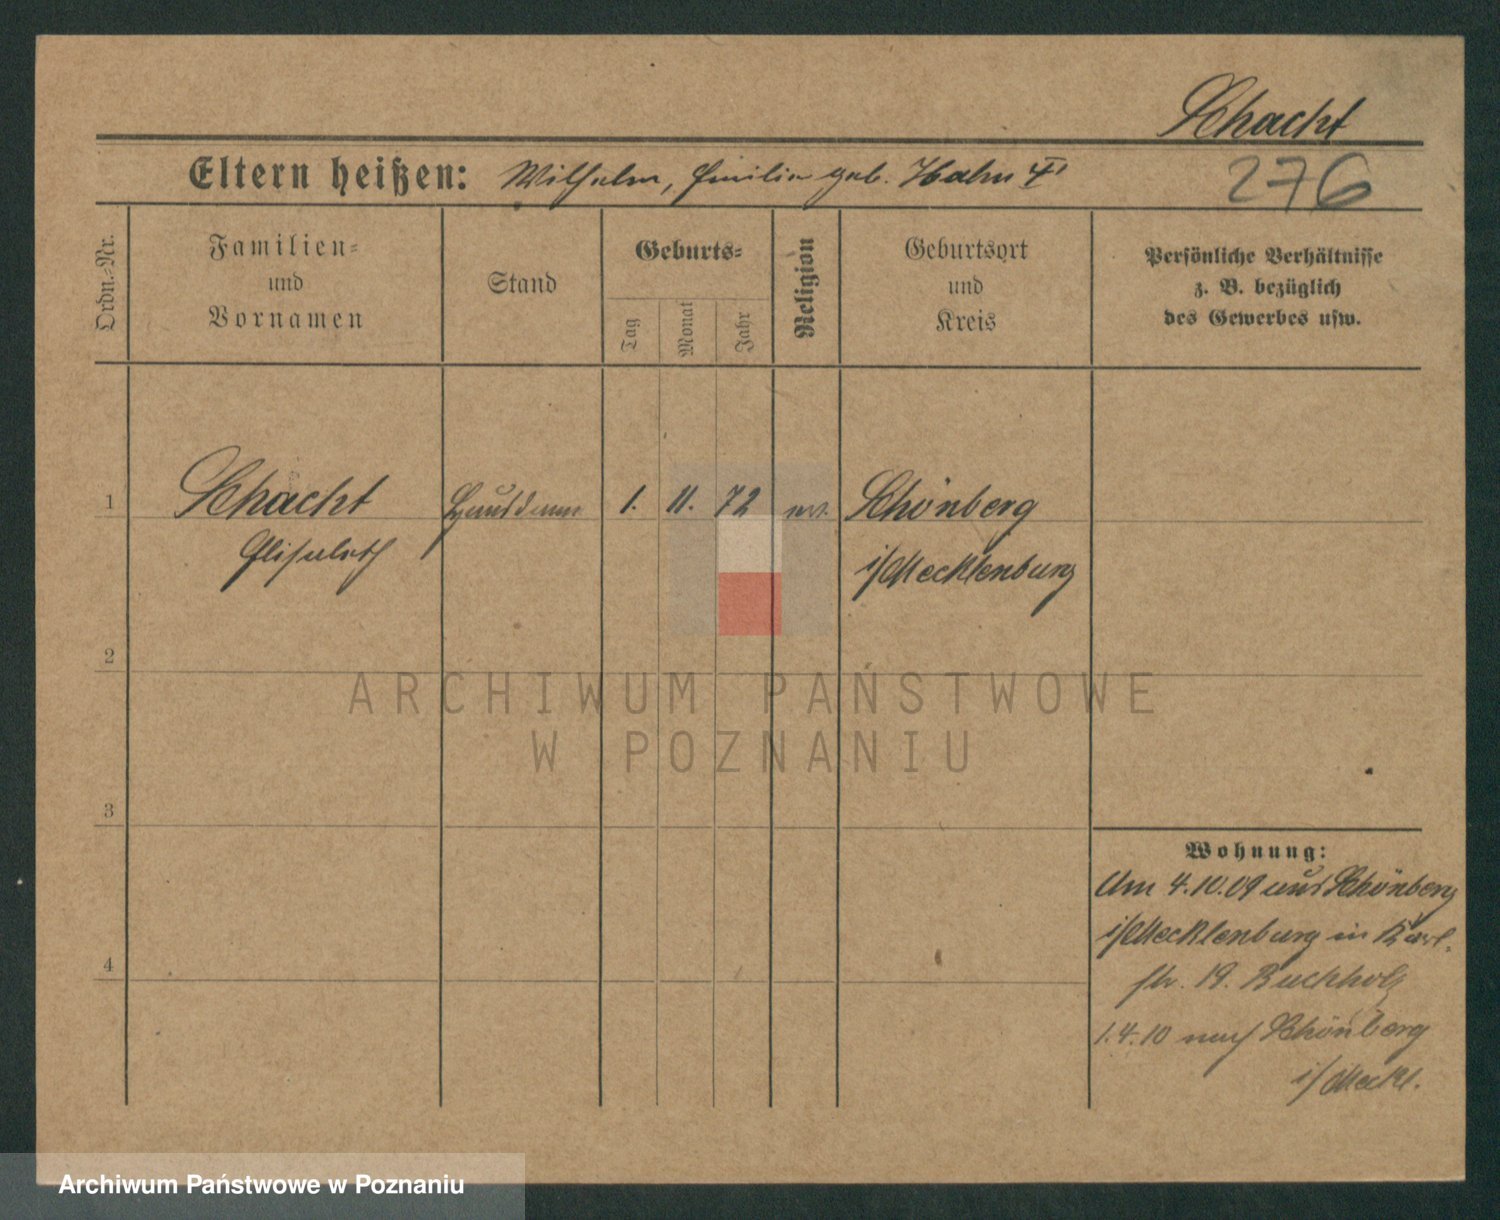 Schacht
Eltern heißen: Wilhelm, Emilie geb. Hahn
276
Ordn.-Nr.
Familien-
und
Vornamen
Stand
Geburts-
Tag
Monat
Jahr
Religion
Geburtsort
und
Kreis
Persönliche Verhältnisse
z. B. bezüglich
des Gewerbes usw.
1 Schacht Hausdame 1. 11. 72 ev. Schönberg
Elisabeth i/Mecklenburg
2
ARCHIWUM PAŃSTWOWE
W POZNANIU
3
Wohnung:
Am 4.10.09 aus Schönberg
i/Mecklenburg in Karl-
4
str. 19. Buchholz
1.4.10 nach Schönberg
i/Meckl.
Archiwum Państwowe w Poznaniu